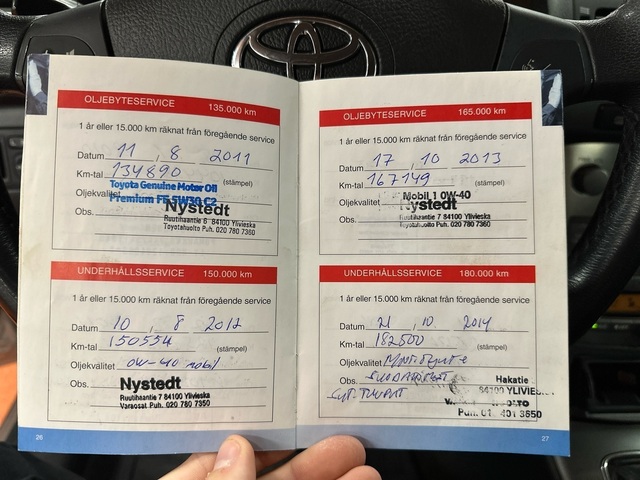 OLJEBYTESERVICE 135.000 km
1 år eller 15.000 km räknat från föregående service
Datum 11 , 8 2011
Km-tal 134890
(stämpel)
Toyota Genuine Motor Oil
Oljekvalitet Premium FE 5W30 C2
Obs. Nystedt
Ruutihaantie 6 84100 Ylivieska
Toyotahuolto Puh. 020 780 7360
UNDERHÅLLSSERVICE 150.000 km
1 år eller 15.000 km räknat från föregående service
Datum 10 , 8 2012
Km-tal 150554
(stämpel)
Oljekvalitet 0W-40 mobil
Obs. Nystedt
Ruutihaantie 7 84100 Ylivieska
Varaosat Puh. 020 780 7350
26
OLJEBYTESERVICE 165.000 km
1 år eller 15.000 km räknat från föregående service
Datum 17 , 10 2013
Km-tal 167149
(stämpel)
Mobil 1 0W-40
Oljekvalitet Nystedt
Obs. Ruutihaantie 7 84100 Ylivieska
Toyotahuolto Puh. 020 780 7360
UNDERHÅLLSSERVICE 180.000 km
1 år eller 15.000 km räknat från föregående service
Datum 21 , 10. 2014
Km-tal 182500
(stämpel)
Oljekvalitet
Obs.
Hakatie
84100 YLIVIESKA
Puh. 401 3650
27